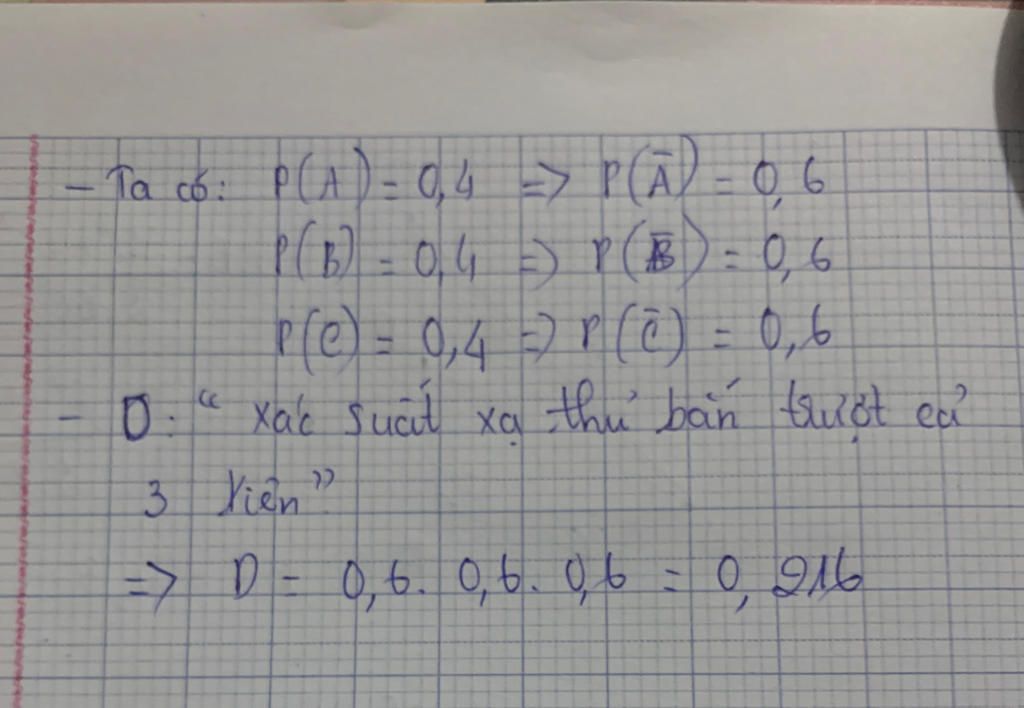 - Ta có: P(A) = 0,4 => P(Ā) = 0,6
P(B) = 0,4 => P(B̄) = 0,6
P(C) = 0,4 => P(C̄) = 0,6
- D: “ xác suất xạ thủ bắn trượt cả
3 viên”
=> D = 0,6. 0,6. 0,6 = 0,216